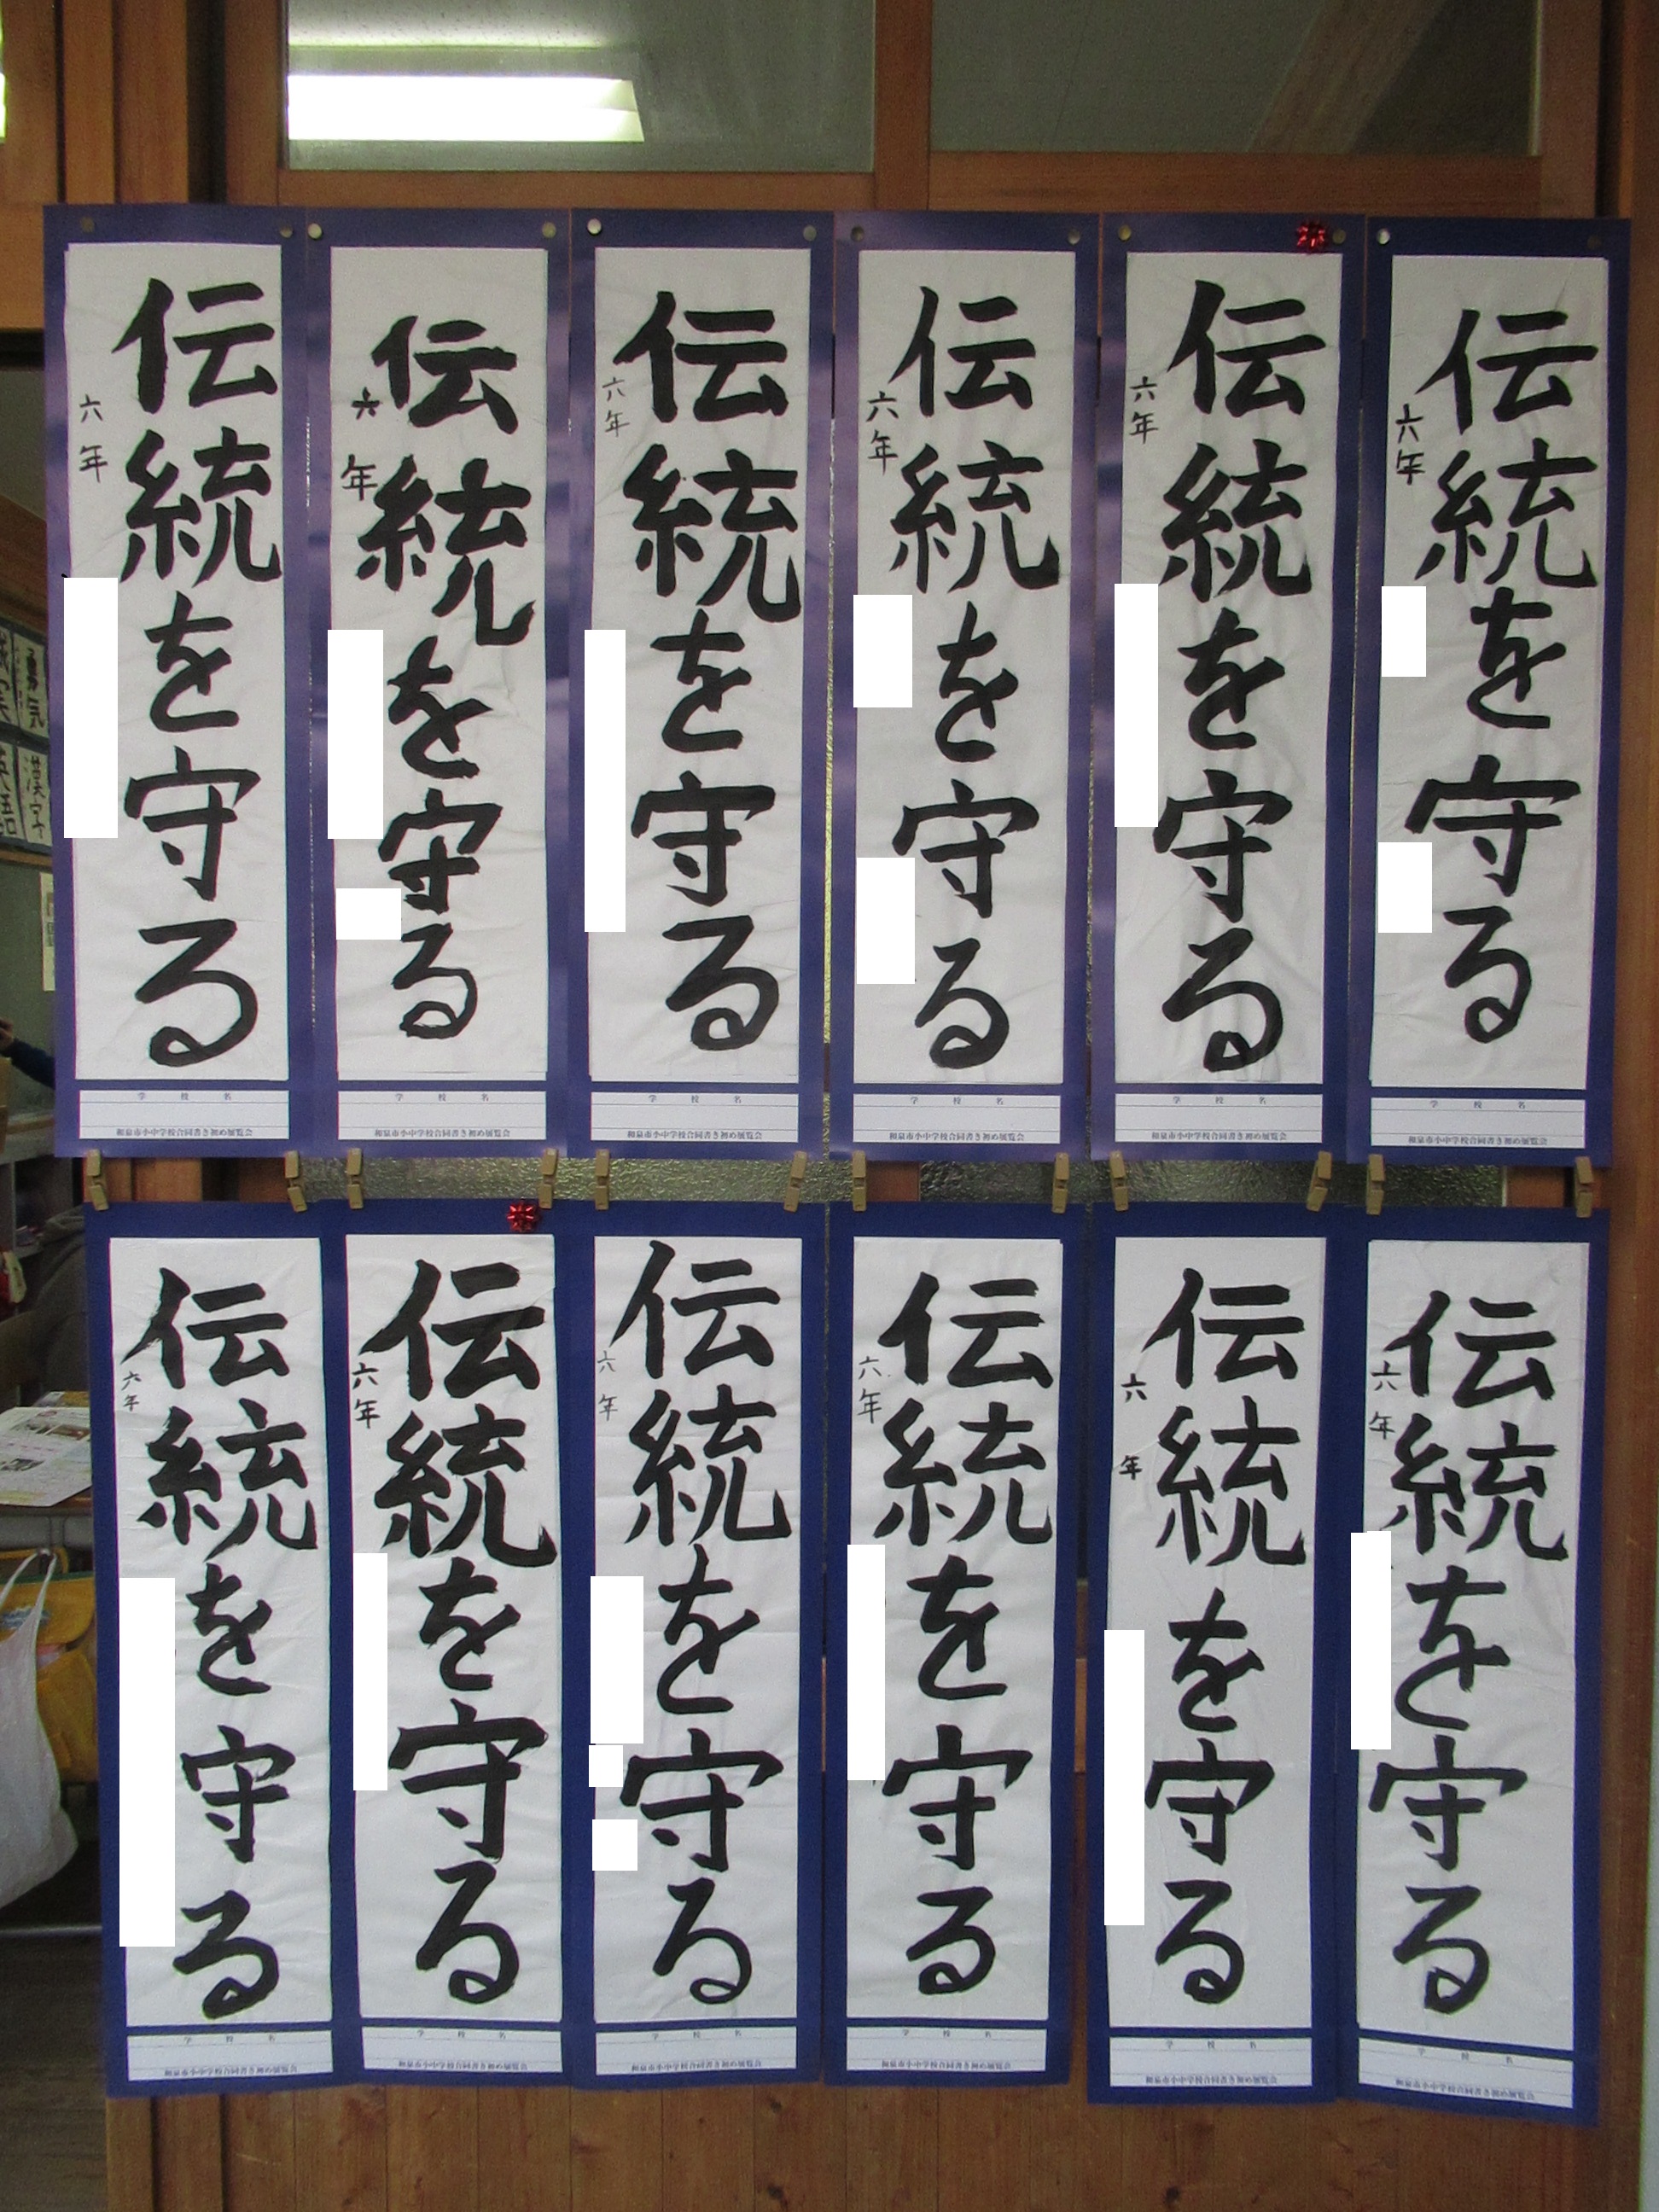 伝統を守る
六年
学校名
和泉市小中学校合同書き初め展覧会
伝統を守る
六年
学校名
和泉市小中学校合同書き初め展覧会
伝統を守る
六年
学校名
和泉市小中学校合同書き初め展覧会
伝統を守る
六年
学校名
和泉市小中学校合同書き初め展覧会
伝統を守る
六年
学校名
和泉市小中学校合同書き初め展覧会
伝統を守る
六年
学校名
和泉市小中学校合同書き初め展覧会
伝統を守る
六年
学校名
和泉市小中学校合同書き初め展覧会
伝統を守る
六年
学校名
和泉市小中学校合同書き初め展覧会
伝統を守る
六年
学校名
和泉市小中学校合同書き初め展覧会
伝統を守る
六年
学校名
和泉市小中学校合同書き初め展覧会
伝統を守る
六年
学校名
和泉市小中学校合同書き初め展覧会
伝統を守る
六年
学校名
和泉市小中学校合同書き初め展覧会
勇気
漢字